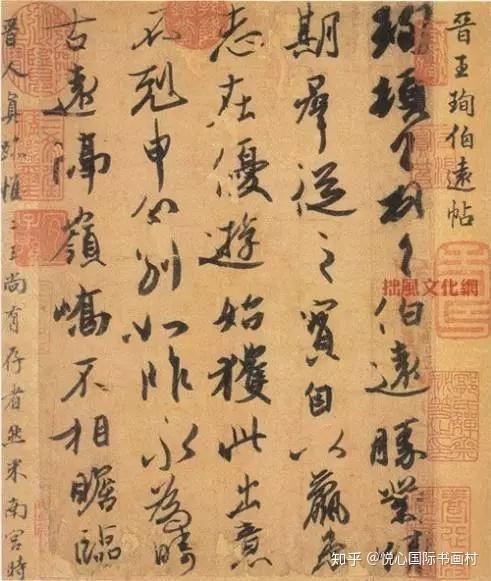 晉王珣伯遠帖
珣頓首頓首伯遠勝業情
期羣從之寶自以羸患
志在優遊始獲此出意
不剋申分別如昨永為疇
古遠隔嶺嶠不相瞻臨
晉人真跡惟二王尚有存者然米南宮時
拙風文化網
知乎 @悦心国际书画村